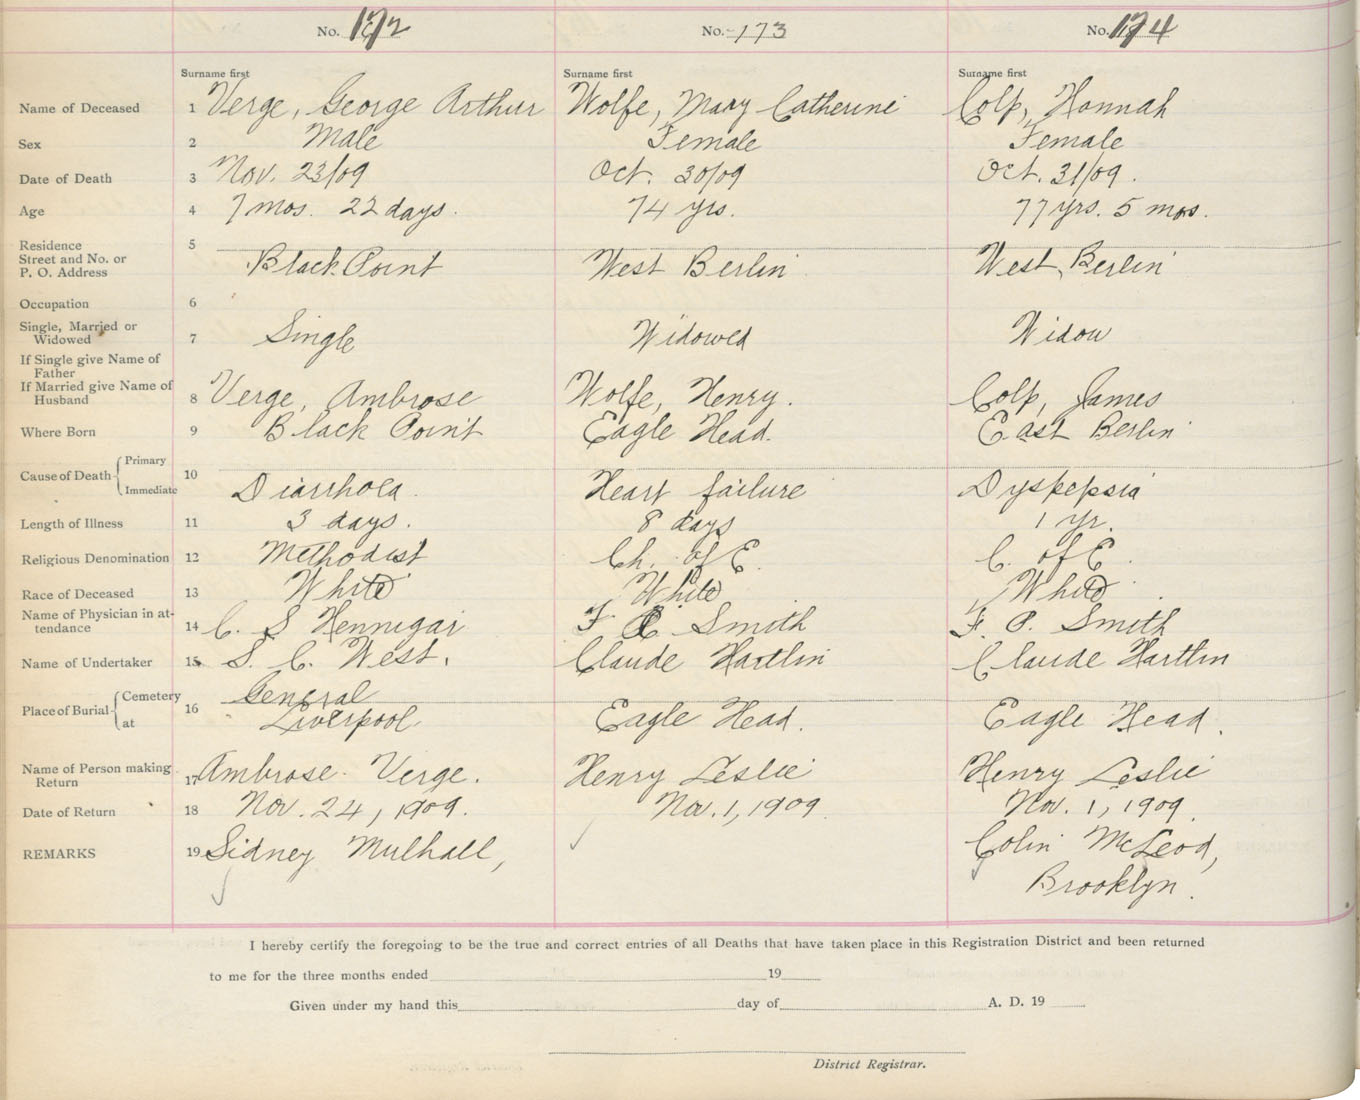 No. 172 No. 173 No. 174
Surname first Surname first Surname first
Name of Deceased 1 Verge, George Arthur Wolfe, Mary Catherine Colp, Hannah
Sex 2 Male Female Female
Date of Death 3 Nov. 23/09 Oct. 30/09 Oct. 31/09.
Age 4 7 mos. 22 days. 74 yrs. 77 yrs. 5 mos.
Residence 5
Street and No. or
P. O. Address Black Point West Berlin West Berlin
Occupation 6
Single, Married or
Widowed 7 Single Widowed Widow
If Single give Name of
Father
If Married give Name of
Husband 8 Verge, Ambrose Wolfe, Henry. Colp, James
Where Born 9 Black Point Eagle Head. East Berlin
Cause of Death Primary 10
Immediate Diarrhoea. Heart failure Dyspepsia
Length of Illness 11 3 days. 8 days 1 yr.
Religious Denomination 12 Methodist Ch. of E. C. of E.
Race of Deceased 13 White White White
Name of Physician in at-
tendance 14 C. S Hennigar F. Smith F. P. Smith
Name of Undertaker 15 S. C. West. Claude Hartlin Claude Hartlin
Place of Burial Cemetery 16 General
at Liverpool Eagle Head. Eagle Head.
Name of Person making
Return 17 Ambrose Verge. Henry Leslie Henry Leslie
Date of Return 18 Nov. 24, 1909. Nov. 1, 1909 Nov. 1, 1909.
REMARKS 19 Sidney Mulhall, Colin McLeod,
Brooklyn.
I hereby certify the foregoing to be the true and correct entries of all Deaths that have taken place in this Registration District and been returned
to me for the three months ended 19
Given under my hand this day of A. D. 19
District Registrar.